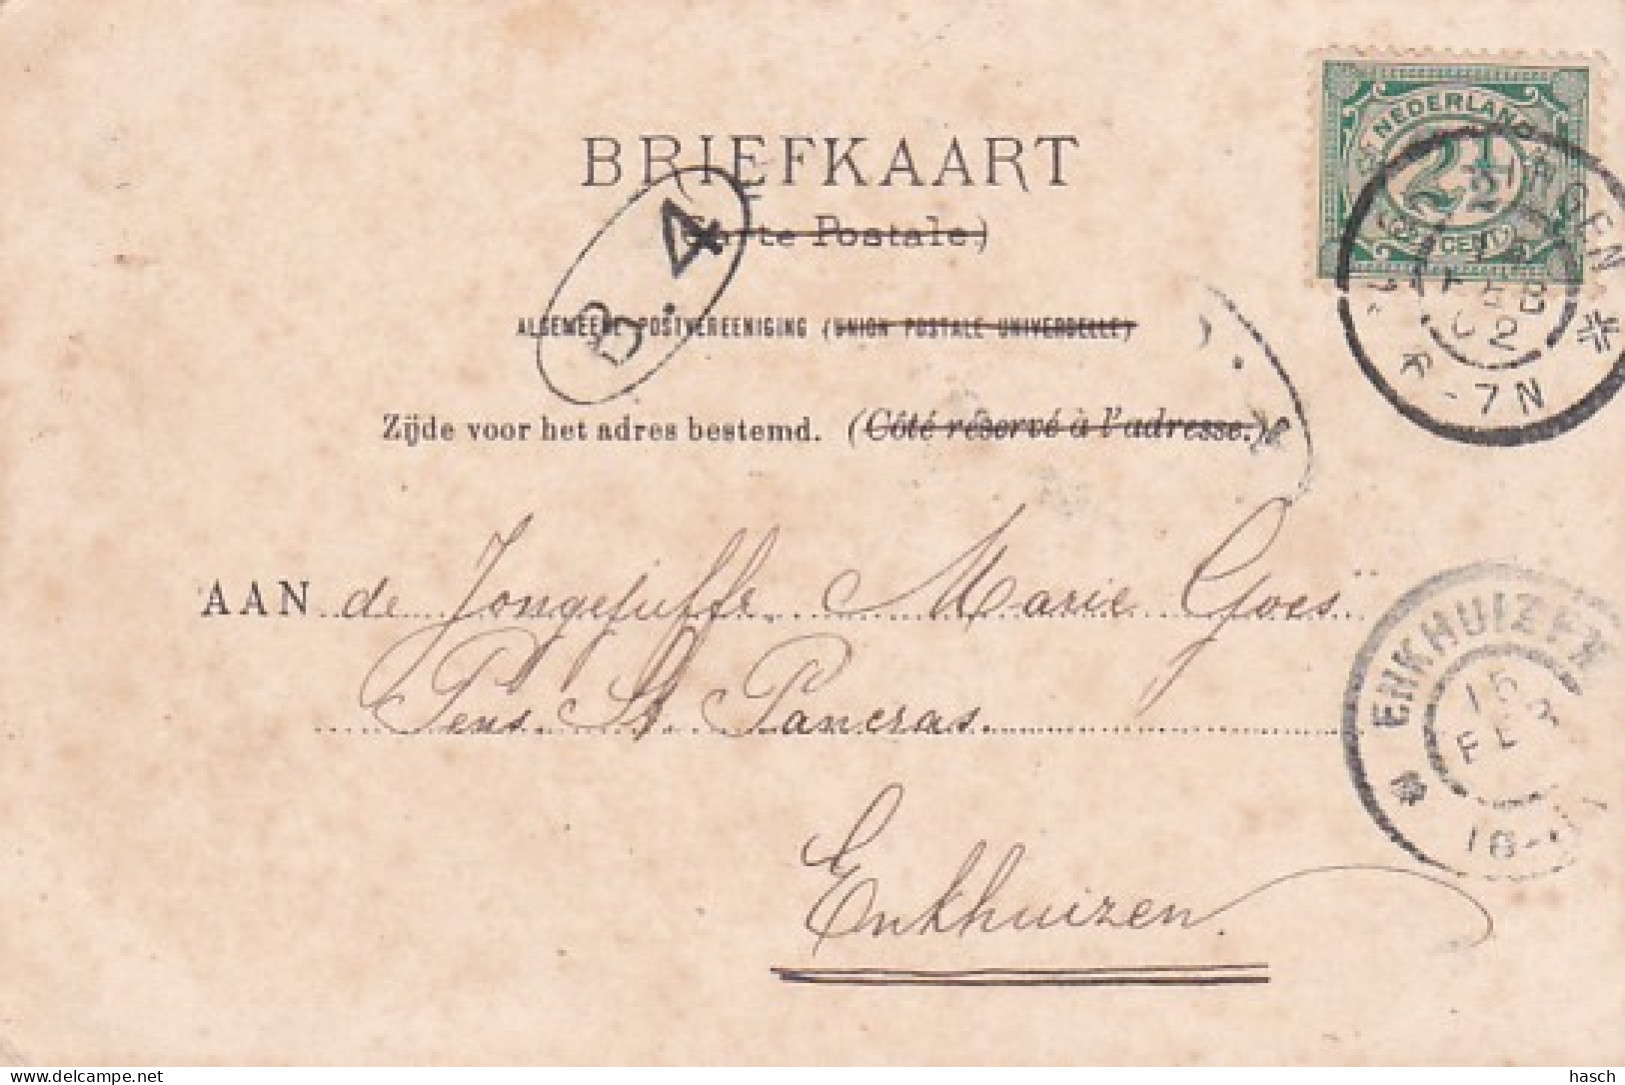 BRIEFKAART
(Carte Postale.)
B.4
ALGEMEENE POSTVEREENIGING (UNION POSTALE UNIVERSELLE)
Zijde voor het adres bestemd. (Côté réservé à l'adresse.)
NEDERLAND
2½
CENT
FEB
02
-7N
AAN de Jongejuffr. Marie Goes
Pens. St. Pancras.
Enkhuizen.
ENKHUIZEN
delcampe.net
hasch